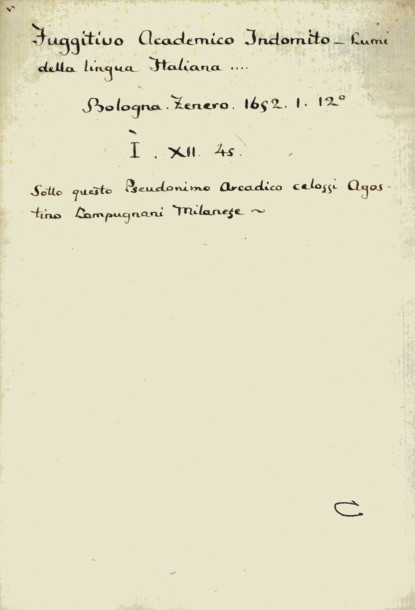 Fuggitivo Academico Indomito - Lumi
della lingua Italiana ....
Bologna. Zenero. 1652. 1. 12º
I. XII. 45.
Sotto questo Pseudonimo Arcadico celossi Agos-
tino Lampugnani Milanese ~
C